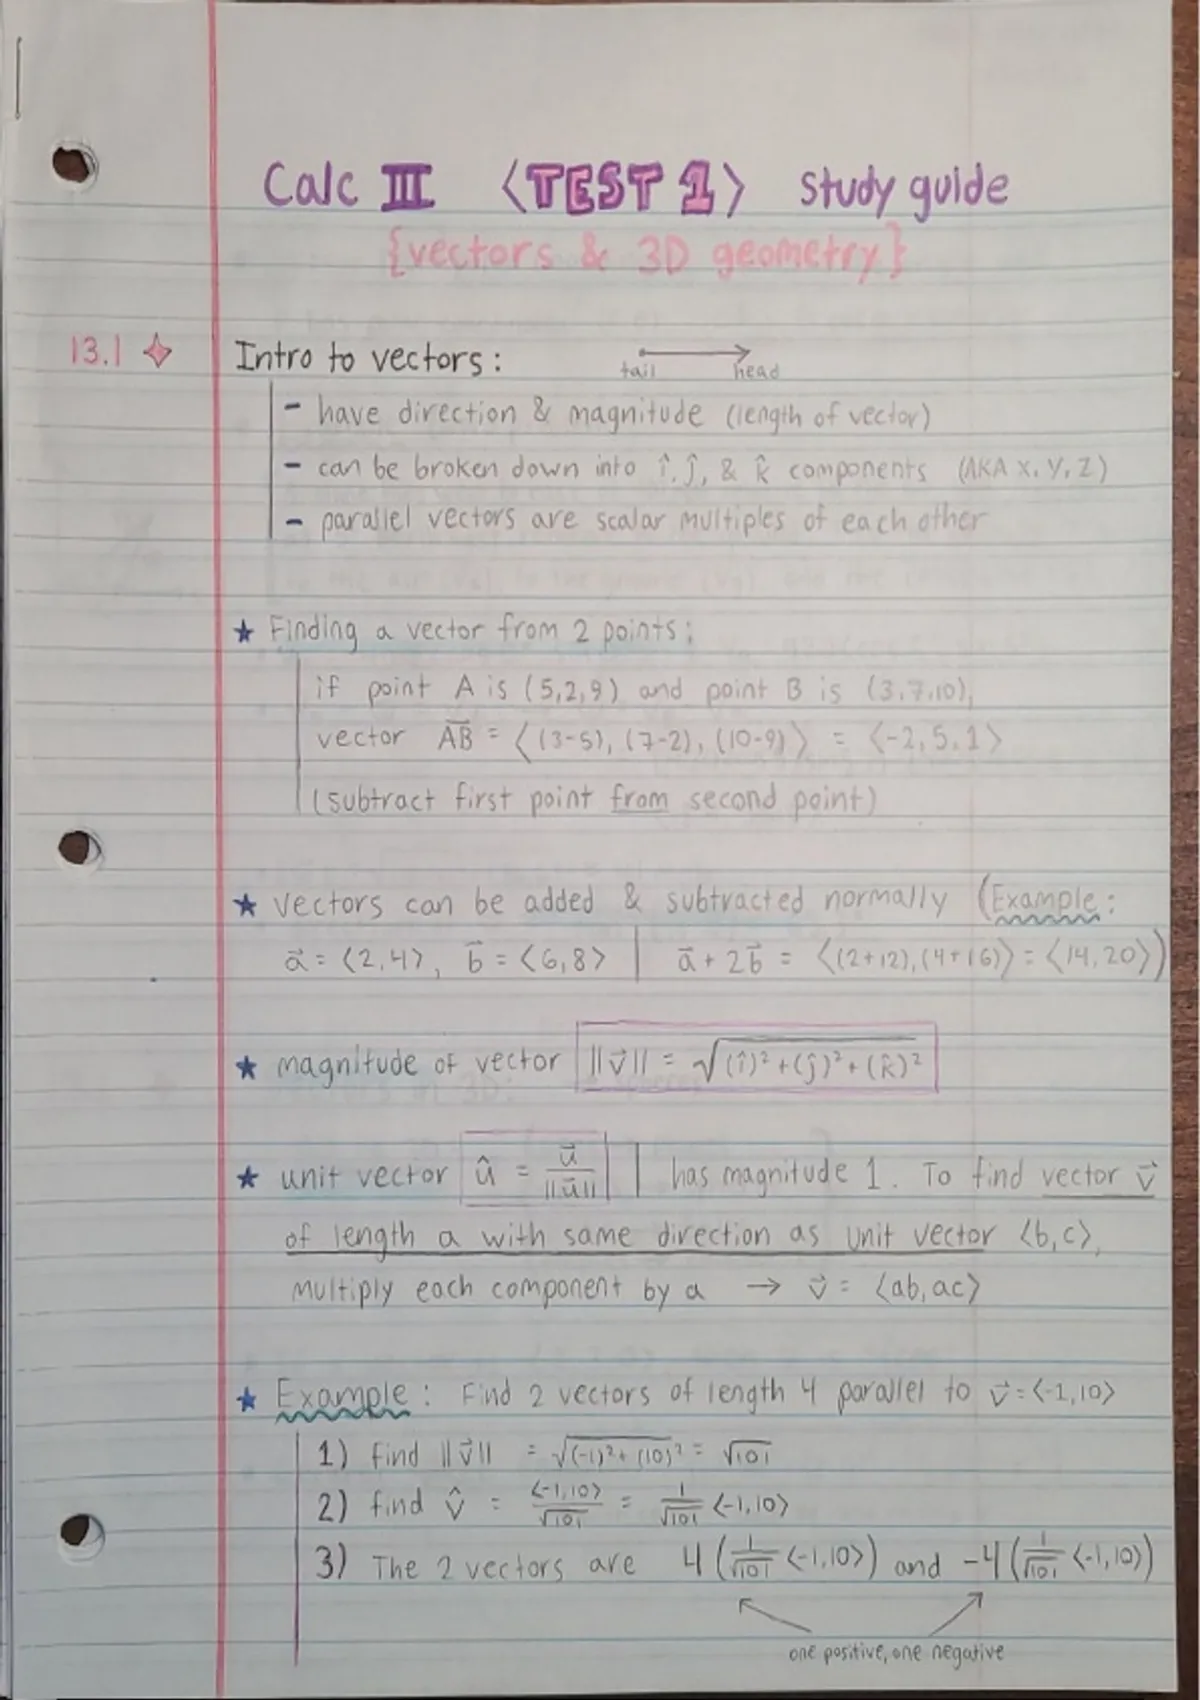 Calc III <TEST 1> study guide
{vectors & 3D geometry}
13.1 Intro to vectors:
tail head
- have direction & magnitude (length of vector)
- can be broken down into î, ĵ, & k̂ components (AKA X, Y, Z)
- parallel vectors are scalar multiples of each other
★ Finding a vector from 2 points:
if point A is (5,2,9) and point B is (3,7,10),
vector A⃗B⃗ = ⟨(3-5), (7-2), (10-9)⟩ = ⟨-2, 5, 1⟩
(subtract first point from second point)
★ vectors can be added & subtracted normally (Example:
a⃗ = ⟨2,4⟩, b⃗ = ⟨6,8⟩ | a⃗ + 2b⃗ = ⟨(2+12), (4+16)⟩ = ⟨14, 20⟩)
★ magnitude of vector ||v⃗|| = √(î)² + (ĵ)² + (k̂)²
★ unit vector û = u⃗/||u⃗|| | has magnitude 1. To find vector v⃗
of length a with same direction as unit vector ⟨b,c⟩,
multiply each component by a → v⃗ = ⟨ab, ac⟩
★ Example: Find 2 vectors of length 4 parallel to v⃗ = ⟨-1,10⟩
1) find ||v⃗|| = √(-1)² + (10)² = √101
2) find v̂ = ⟨-1,10⟩/√101 = 1/√101 ⟨-1,10⟩
3) The 2 vectors are 4(1/√101 ⟨-1,10⟩) and -4(1/√101 ⟨-1,10⟩)
one positive, one negative